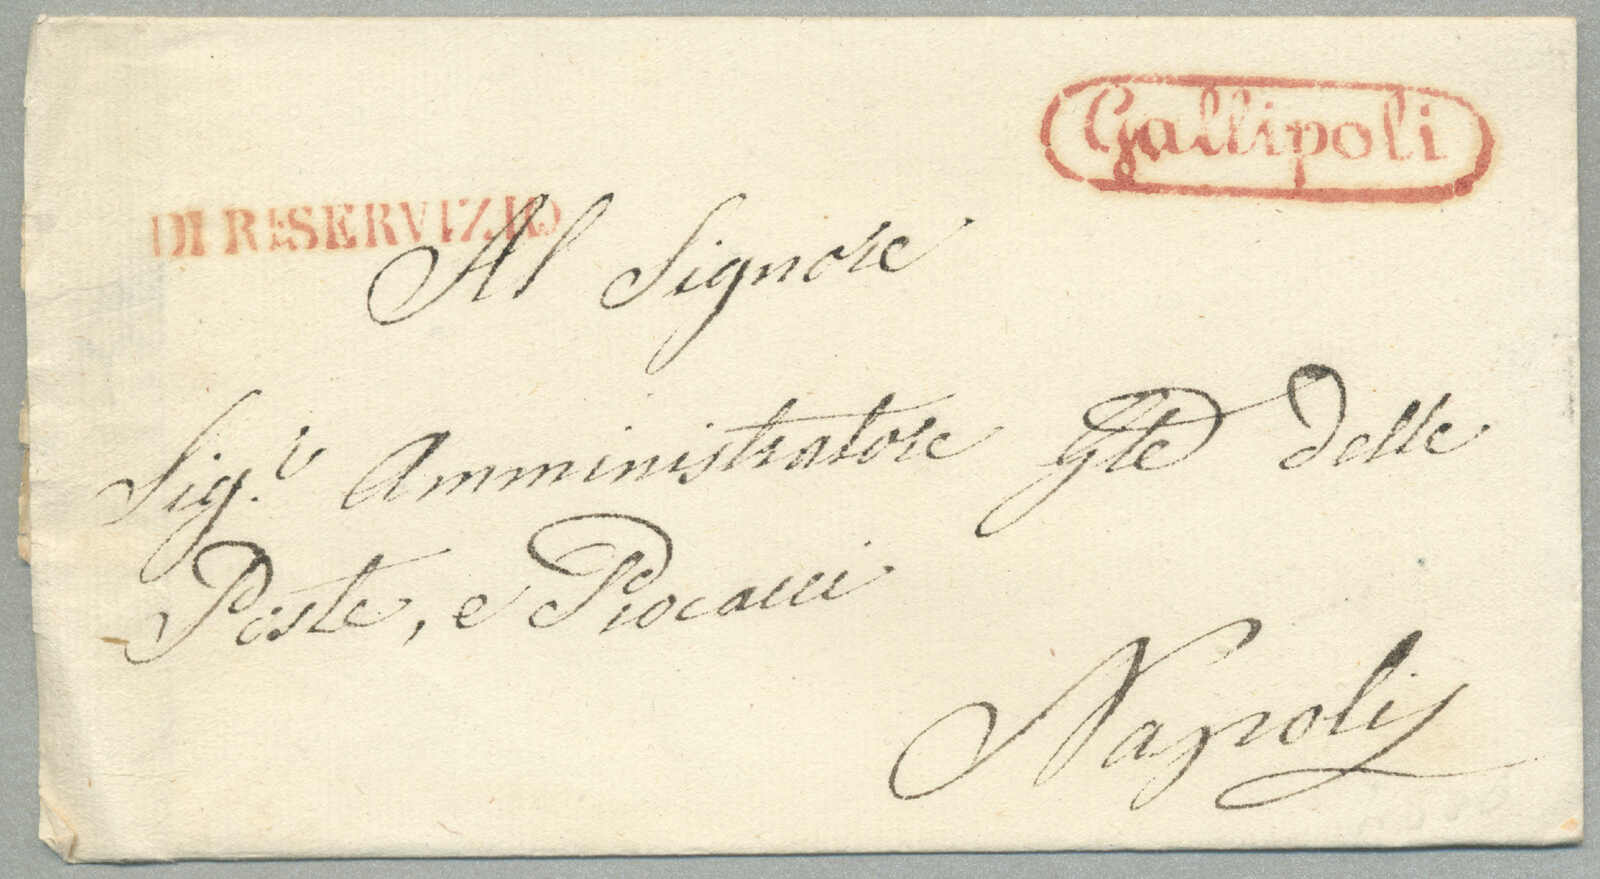 Gallipoli
DI R: SERVIZIO
Al Signore
Sig.r Amministratore Gle delle
Poste, e Procacci
Napoli